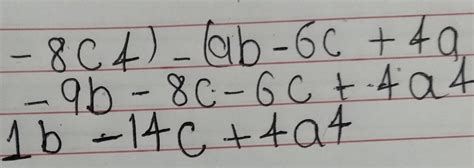 - 8c4) - (9b - 6c + 4a
- 9b - 8c - 6c + 4a4
1b - 14c + 4a4